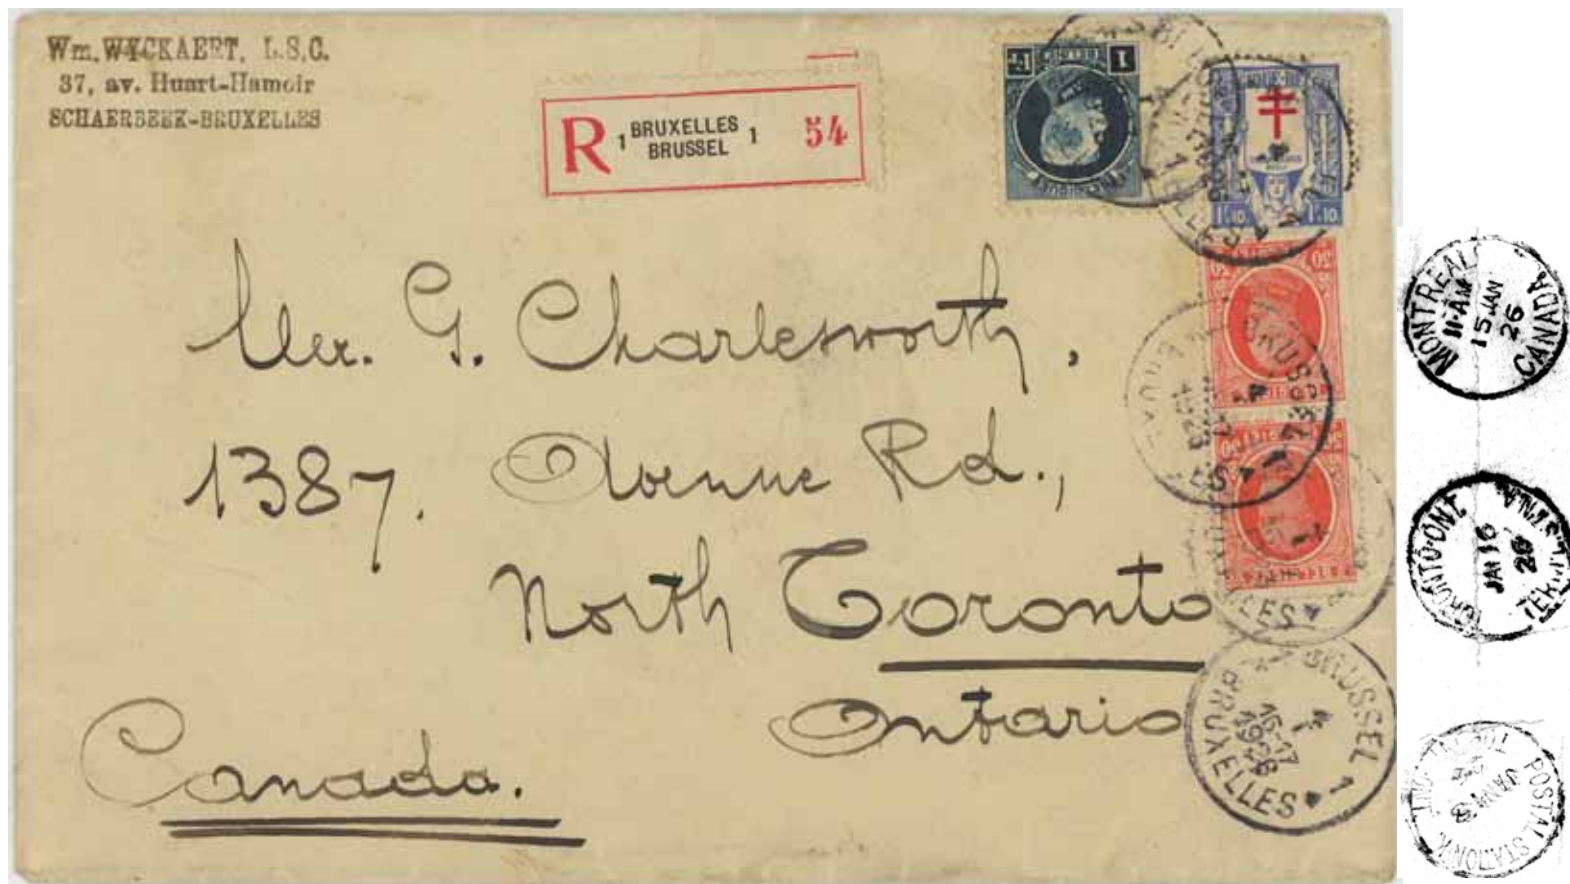 Wm. WYCKAERT, L.S.C.
37, av. Huart-Hamoir
SCHAERBEEK-BRUXELLES
R 1 BRUXELLES 1 54
BRUSSEL
Mr. G. Charlesworth,
1387. Avenue Rd.,
North Toronto
Ontario
Canada.
1 Fr
1
1F.10.
1F.10.
20
20
BRUSSEL 1
4 1
15-17
1926
BRUXELLES
MONTREAL
11-AM
15 JAN
26
CANADA
TORONTO·ONT
JA 16
26
POSTAL STATION K